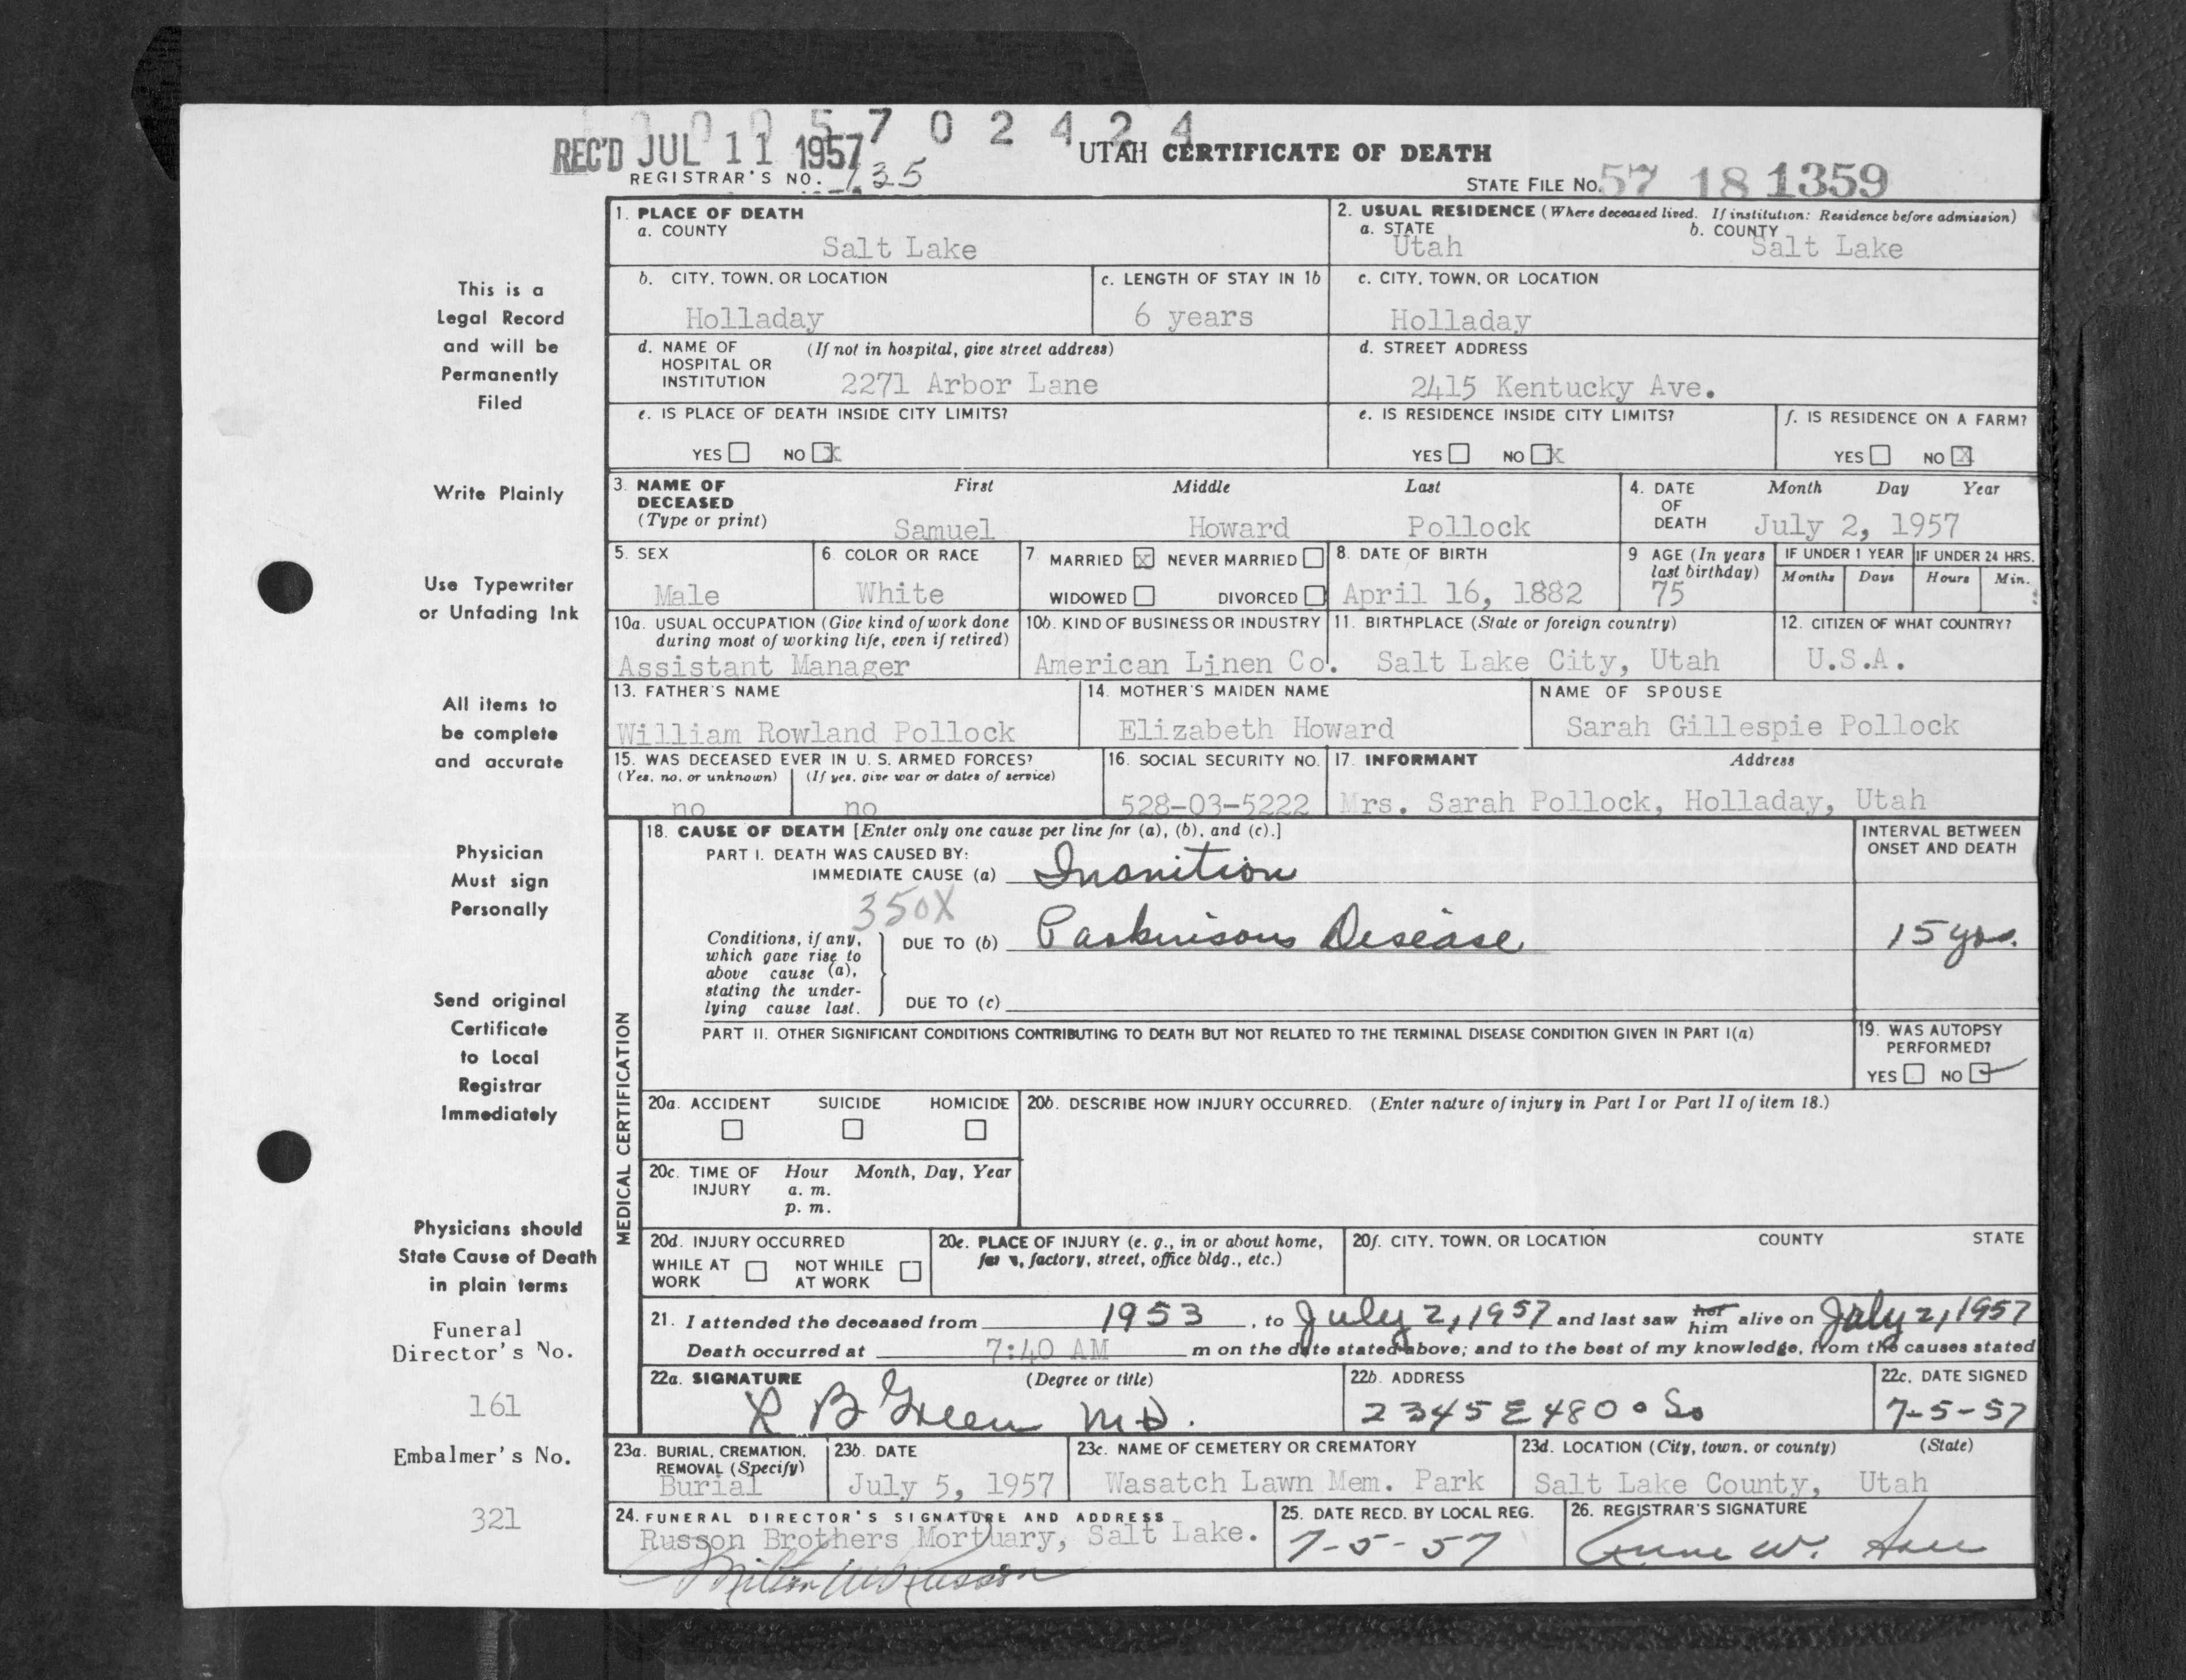 1 0 0 5 7 0 2 4 2 4
REC'D JUL 11 1957
UTAH CERTIFICATE OF DEATH
REGISTRAR'S NO. 135
STATE FILE NO. 57 18 1359
1. PLACE OF DEATH
a. COUNTY
Salt Lake
2. USUAL RESIDENCE (Where deceased lived. If institution: Residence before admission)
a. STATE b. COUNTY
Utah Salt Lake
b. CITY, TOWN, OR LOCATION
Holladay
c. LENGTH OF STAY IN 1b
6 years
c. CITY, TOWN, OR LOCATION
Holladay
d. NAME OF (If not in hospital, give street address)
HOSPITAL OR
INSTITUTION 2271 Arbor Lane
d. STREET ADDRESS
2415 Kentucky Ave.
e. IS PLACE OF DEATH INSIDE CITY LIMITS?
YES NO X
e. IS RESIDENCE INSIDE CITY LIMITS?
YES NO X
f. IS RESIDENCE ON A FARM?
YES NO X
3. NAME OF First Middle Last
DECEASED
(Type or print) Samuel Howard Pollock
4. DATE Month Day Year
OF
DEATH July 2, 1957
5. SEX
Male
6. COLOR OR RACE
White
7. MARRIED X NEVER MARRIED
WIDOWED DIVORCED
8. DATE OF BIRTH
April 16, 1882
9 AGE (In years
last birthday)
75
IF UNDER 1 YEAR IF UNDER 24 HRS.
Months Days Hours Min.
10a. USUAL OCCUPATION (Give kind of work done
during most of working life, even if retired)
Assistant Manager
10b. KIND OF BUSINESS OR INDUSTRY
American Linen Co.
11. BIRTHPLACE (State or foreign country)
Salt Lake City, Utah
12. CITIZEN OF WHAT COUNTRY?
U.S.A.
13. FATHER'S NAME
William Rowland Pollock
14. MOTHER'S MAIDEN NAME
Elizabeth Howard
NAME OF SPOUSE
Sarah Gillespie Pollock
15. WAS DECEASED EVER IN U. S. ARMED FORCES?
(Yes, no, or unknown) (If yes, give war or dates of service)
no no
16. SOCIAL SECURITY NO.
528-03-5222
17. INFORMANT Address
Mrs. Sarah Pollock, Holladay, Utah
MEDICAL CERTIFICATION
18. CAUSE OF DEATH [Enter only one cause per line for (a), (b), and (c).]
PART I. DEATH WAS CAUSED BY:
IMMEDIATE CAUSE (a) Inanition
INTERVAL BETWEEN
ONSET AND DEATH
350X
Conditions, if any,
which gave rise to
above cause (a),
stating the under-
lying cause last.
DUE TO (b) Parkinsons Disease
15 yrs.
DUE TO (c)
PART II. OTHER SIGNIFICANT CONDITIONS CONTRIBUTING TO DEATH BUT NOT RELATED TO THE TERMINAL DISEASE CONDITION GIVEN IN PART I(a)
19. WAS AUTOPSY
PERFORMED?
YES NO ✓
20a. ACCIDENT SUICIDE HOMICIDE
20b. DESCRIBE HOW INJURY OCCURRED. (Enter nature of injury in Part I or Part II of item 18.)
20c. TIME OF Hour Month, Day, Year
INJURY a. m.
p. m.
20d. INJURY OCCURRED
WHILE AT NOT WHILE
WORK AT WORK
20e. PLACE OF INJURY (e. g., in or about home,
farm, factory, street, office bldg., etc.)
20f. CITY, TOWN, OR LOCATION COUNTY STATE
21. I attended the deceased from 1953, to July 2, 1957 and last saw her him alive on July 2, 1957
Death occurred at 7:40 AM m on the date stated above; and to the best of my knowledge, from the causes stated
22a. SIGNATURE (Degree or title)
R B Green M.D.
22b. ADDRESS
2345 E 4800 So
22c. DATE SIGNED
7-5-57
23a. BURIAL, CREMATION,
REMOVAL (Specify)
Burial
23b. DATE
July 5, 1957
23c. NAME OF CEMETERY OR CREMATORY
Wasatch Lawn Mem. Park
23d. LOCATION (City, town, or county) (State)
Salt Lake County, Utah
24. FUNERAL DIRECTOR'S SIGNATURE AND ADDRESS
Russon Brothers Mortuary, Salt Lake.
25. DATE RECD. BY LOCAL REG.
7-5-57
26. REGISTRAR'S SIGNATURE
This is a
Legal Record
and will be
Permanently
Filed
Write Plainly
Use Typewriter
or Unfading Ink
All items to
be complete
and accurate
Physician
Must sign
Personally
Send original
Certificate
to Local
Registrar
Immediately
Physicians should
State Cause of Death
in plain terms
Funeral
Director's No.
161
Embalmer's No.
321